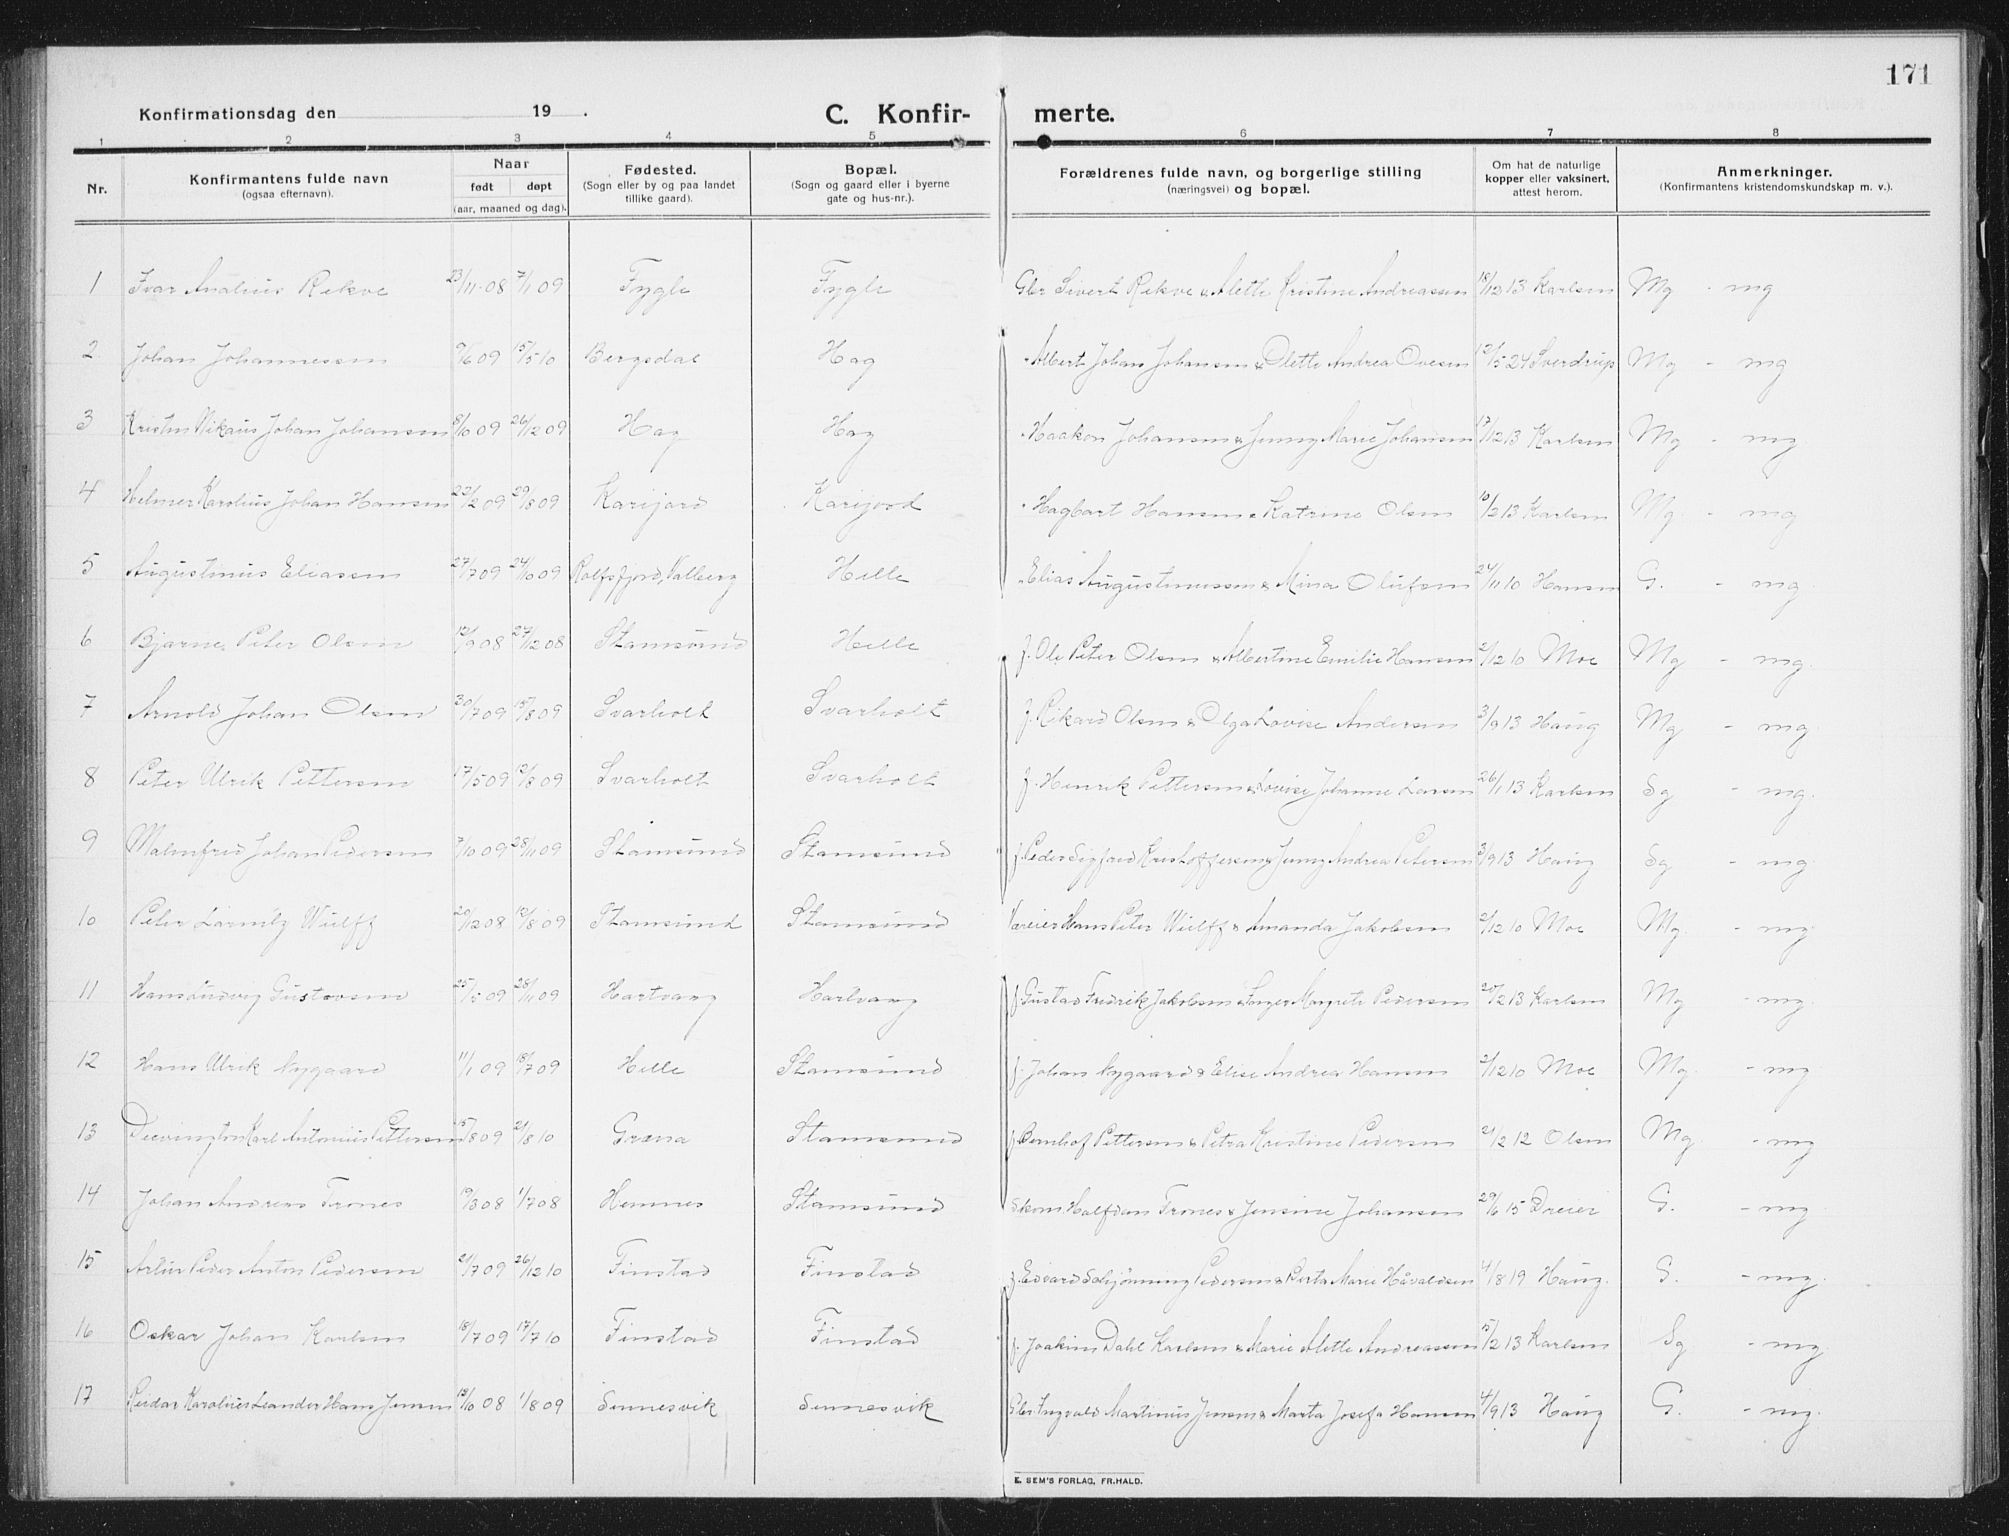 171
Konfirmationsdag den 19 .
C. Konfir- merte.
1 2 3 4 5 6 7 8
Nr.
Konfirmantens fulde navn
(ogsaa efternavn).
Naar
født døpt
(aar, maaned og dag).
Fødested.
(Sogn eller by og paa landet
tillike gaard).
Bopæl.
(Sogn og gaard eller i byerne
gate og hus-nr.).
Forældrenes fulde navn, og borgerlige stilling
(næringsvei) og bopæl.
Om hat de naturlige
kopper eller vaksinert,
attest herom.
Anmerkninger.
(Konfirmantens kristendomskundskap m. v.).
1 Ivar Analius Rekve 23/11-08 7/1 09 Fygle Fygle Gbr Sivert Rekve & Alette Kristine Andreassen 18/12 13 Karlsen Mg - mg
2 Johan Johannessen 9/6 09 15/5 10 Bergsdal Hag Albert Johan Johansen & Olette Andrea Ovesen 12/5 24 Sverdrup Mg - mg
3 Johan Johansen 8/10 09 26/12 09 Hag Hag Haakon Johansen & Jenny Marie Johansen 17/12 13 Karlsen Mg - mg
4 Helmer Karolius Johan Hansen 22/2 09 29/8 09 Karijord Karijord Hagbart Hansen & Katrine Olsen 10/2 13 Karlsen Mg - mg
5 Augustinus Eliassen 27/7 09 24/10 09 Rolfsfjord, Valberg Helle Elias Augustinussen & Mina Olufsen 24/11 10 Hansen G. - mg
6 Bjarne Peter Olsen 12/9 08 27/12 08 Stamsund Helle f. Ole Peter Olsen & Albertine Emilie Hansen 2/12 10 Moe Mg - mg.
7 Arnold Johan Olsen 30/7 09 15/8 09 Svarholt Svarholt f. Rikard Olsen & Olga Lovise Andersen 3/9 13 Haug Mg - mg.
8 Peter Ulrik Pettersen 17/5 09 12/8 09 Svarholt Svarholt f. Henrik Pettersen & Lovise Johanne Larsen 26/1 13 Karlsen Sg - mg.
9 Malmfred Johan Pedersen 7/10 09 28/11 09 Stamsund Stamsund f. Peder Sigfred Kristoffersen & Jenny Andrea Petersen 3/9 13 Haug Sg - mg
10 Peter Wulff 20/12 08 12/8 09 Stamsund Stamsund Hans Peter Wulff & Amanda Jakobsen 2/12 10 Moe Mg. - mg
11 Hans Ludvig Gustavsen 25/5 09 28/11 09 Hartvaag Hartvaag f. Gustav Fredrik Jakobsen & Inger Margrete Pedersen 20/2 13 Karlsen Mg - mg
12 Hans Ulrik Nygaard 11/1 09 18/7 09 Helle Stamsund f. Johan Nygaard & Elise Andrea Hansen 2/12 10 Moe Mg. - mg
13 Karl Antonius Pettersen 15/8 09 21/8 10 Græna Stamsund f. Bernhof Pettersen & Petra Kristine Pedersen 21/2 12 Olsen Mg - mg
14 Johan Andreas Trones 19/3 08 1/7 08 Hemnes Stamsund Skom Halfdan Trones & Jensine Johansen 29/6 15 Dreier G. - mg
15 Peder Anton Pedersen 21/7 09 26/12 10 Finstad Finstad f. Edvard Schjønning Pedersen & Berta Marie Håvaldsen 4/8 19 Haug. G. - mg.
16 Oskar Johan Karlsen 18/7 09 17/7 10 Finstad Finstad f. Joakim Dahl Karlsen & Marie Alette Andreassen 15/2 13 Karlsen Sg - mg
17 Reidar Karolius Leander Hans Jensen 19/10 08 1/8 09 Sennesvik Sennesvik Gbr. Ingvald Martinus Jensen & Marta Josefa Hansen 4/9 13 Haug G. - mg.
E. SEM'S FORLAG, FR.HALD.